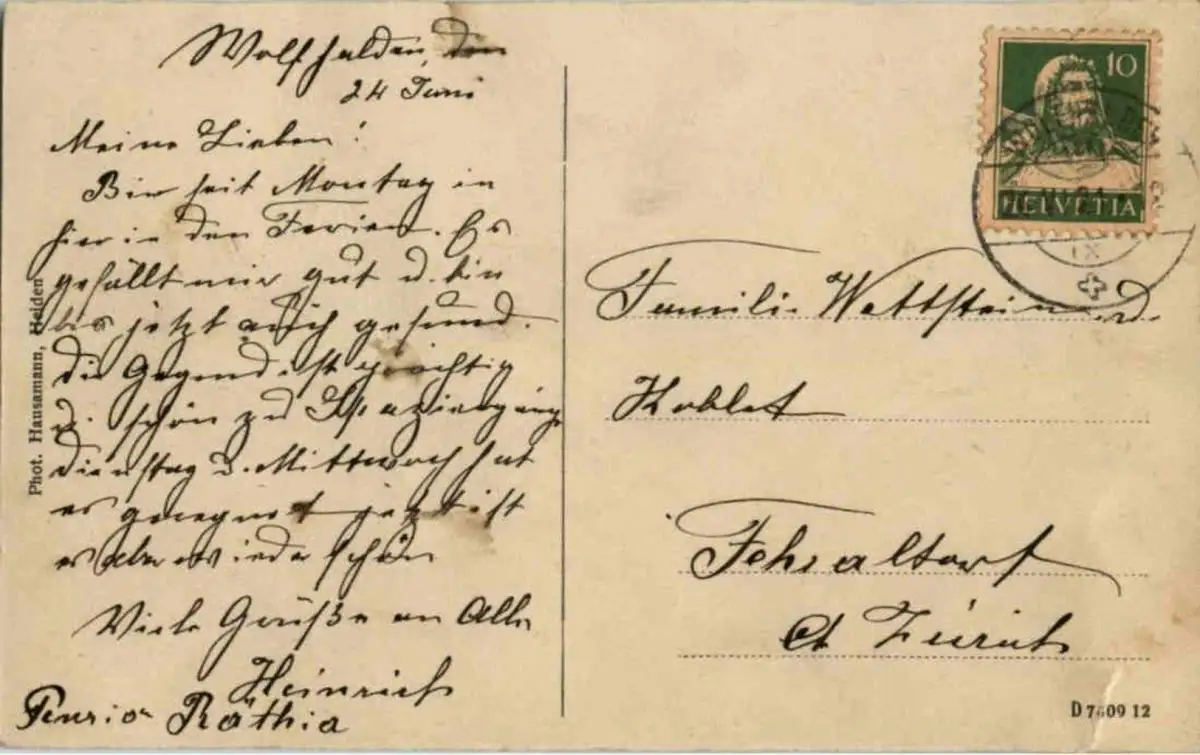 Wolfhalden, den
24 Juni
Meine Lieben!
Bin seit Montag in
hier in den Ferien. Es
gefällt mir gut u. bin
bis jetzt auch gesund.
die Gegend ist prächtig
u. schön zu Spaziergänge
Dienstag u. Mittwoch hat
es geregnet jetzt ist
es aber wieder schön
Viele Grüße an Alle
Heinrich
Pension Räthia
Phot. Hausamann, Heiden
10
HELVETIA
Famili Wettstein u.
Koblet
Fehraltorf
Ct Zürich
D 7609 12